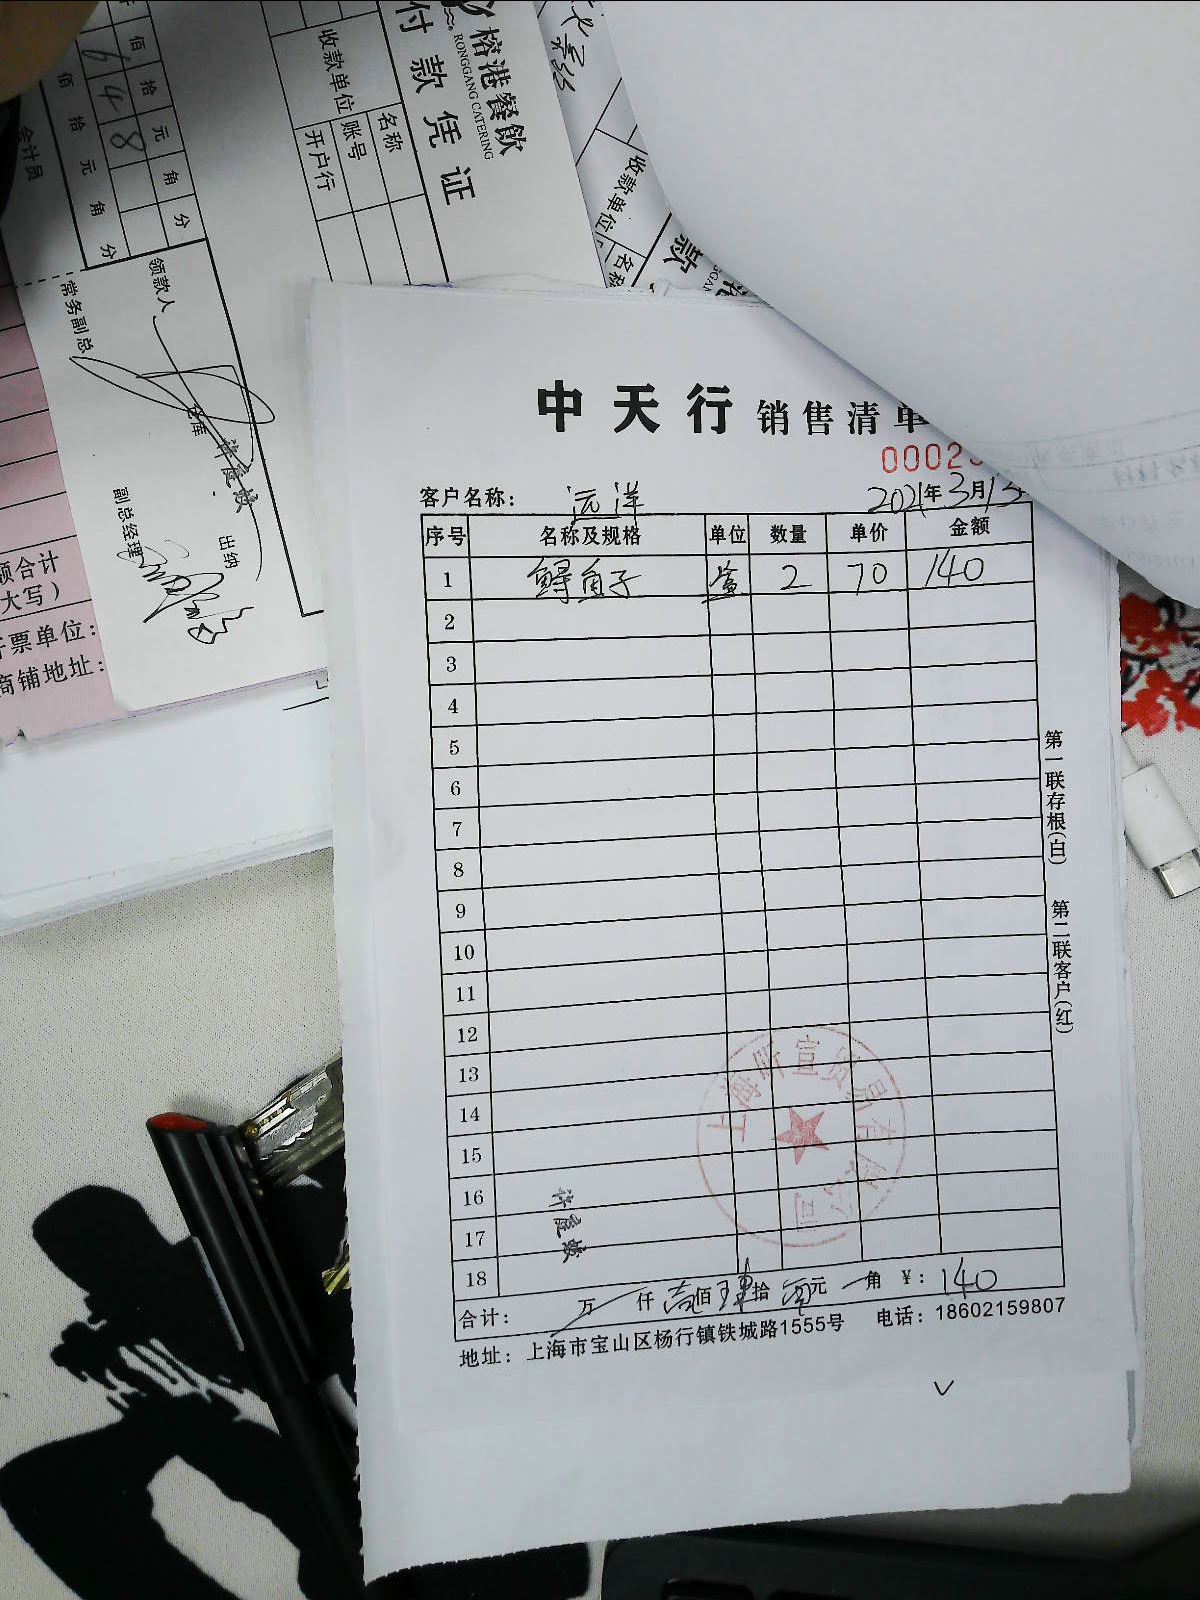 榕港餐飲
RONGGANG CATERING
付款凭证
收款单位
名称
账号
开户行
佰 拾 元 角 分
6 4 8
佰 拾 元 角 分
会计员
领款人
常务副总
仓库 许爱娥
出纳
副总经理
额合计
大写）
开票单位：
商铺地址：
收款单位
名称
款
中天行 销售清单
0002
客户名称： 远洋 2021年3月13
序号 名称及规格 单位 数量 单价 金额
1 鲟鱼子 2 70 140
2
3
4
5
6
7
8
9
10
11
12
13
14
15
16
17
18
许爱娥
上海昕宣贸易有限公司
合计： 万 仟 壹佰肆拾零元 角 ¥： 140
地址：上海市宝山区杨行镇铁城路1555号 电话：18602159807
第一联存根(白) 第二联客户(红)